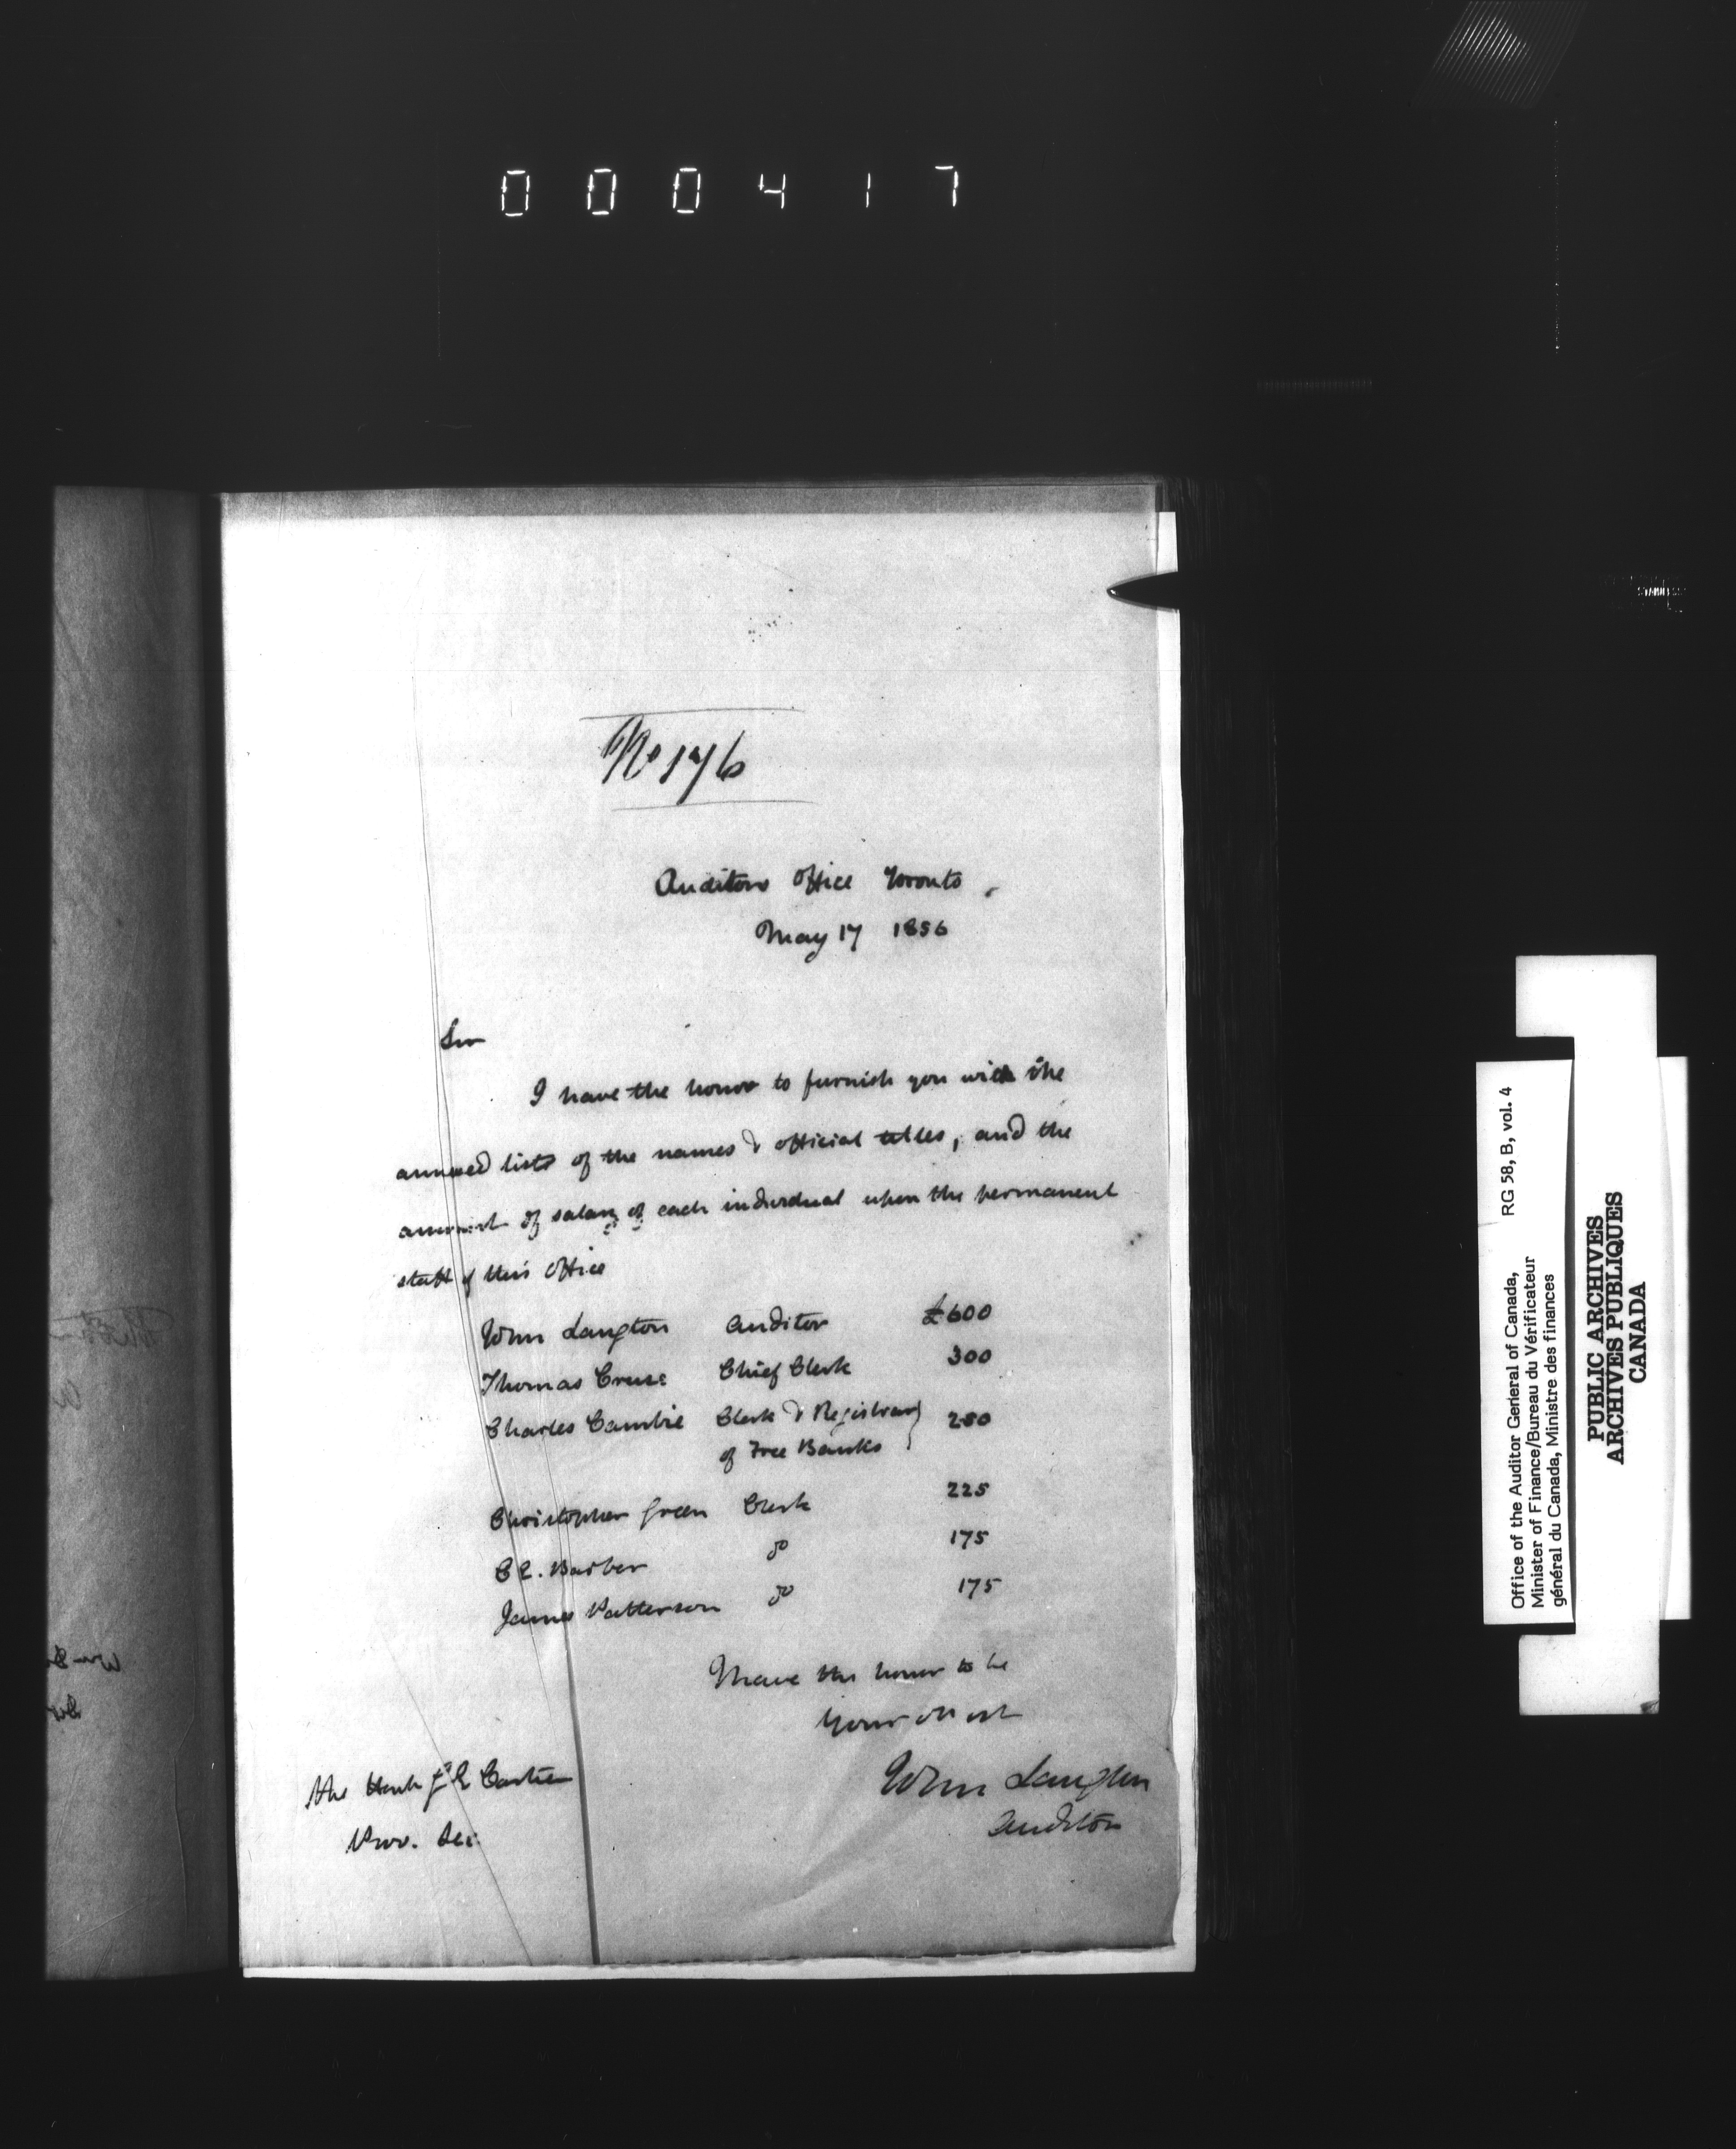 000417
No 176
Auditors Office Toronto,
May 17 1856
Sir
I have the honor to furnish you with the
annexed lists of the names & official titles, and the
amount of salary of each individual upon the permanent
staff of this office
Wm Langton Auditor £600
Thomas Cruse Chief Clerk 300
Charles Cambie Clerk & Registrar } 250
of Free Banks
Christopher Green Clerk 225
C E. Barber do 175
James Patterson do 175
I have the honor to be
Your
The Honb G E Cartier
Prov. Sec
Auditor
Office of the Auditor General of Canada, RG 58, B, vol. 4
Minister of Finance/Bureau du Vérificateur
général du Canada, Ministre des finances
PUBLIC ARCHIVES
ARCHIVES PUBLIQUES
CANADA